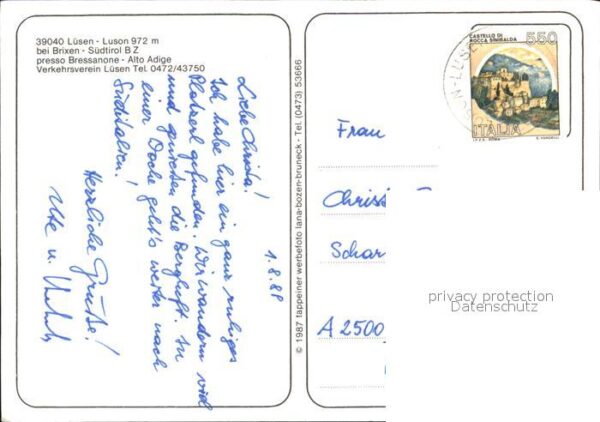 39040 Lüsen - Luson 972 m
bei Brixen - Südtirol B Z
presso Bressanone - Alto Adige
Verkehrsverein Lüsen Tel. 0472/43750
1.8.88
Liebe Christa!
Ich habe hier ein ganz ruhiges
Platzerl gefunden. Wir wandern viel
und genießen die Bergluft. In
einer Woche geht's weiter nach
Süditalien!
Herzliche Grüße!
Ute u.
© 1987 tappeiner werbefoto lana-bozen-bruneck - Tel. (0473) 53666
CASTELLO DI
ROCCA SINIBALDA
550
ITALIA
I.P.Z.S. ROMA
Frau
Christ
Schar
A 2500
privacy protection
Datenschutz